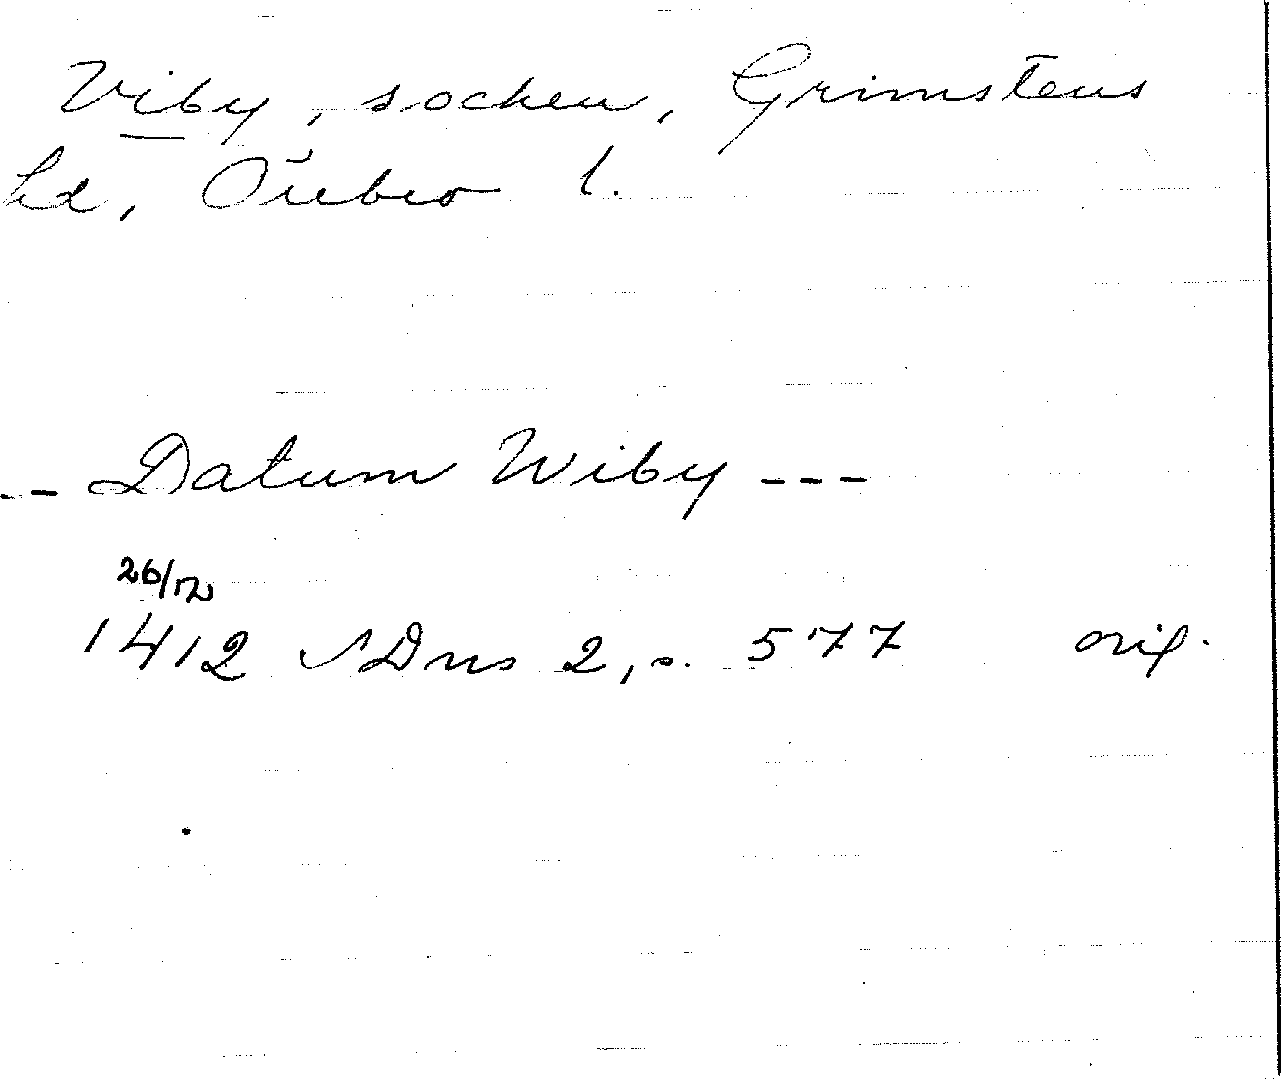 Viby, socken, Grimstens
hd, Örebro l.
-- Datum Wiby ---
26/12
1412 SDns 2, s. 577 orig.